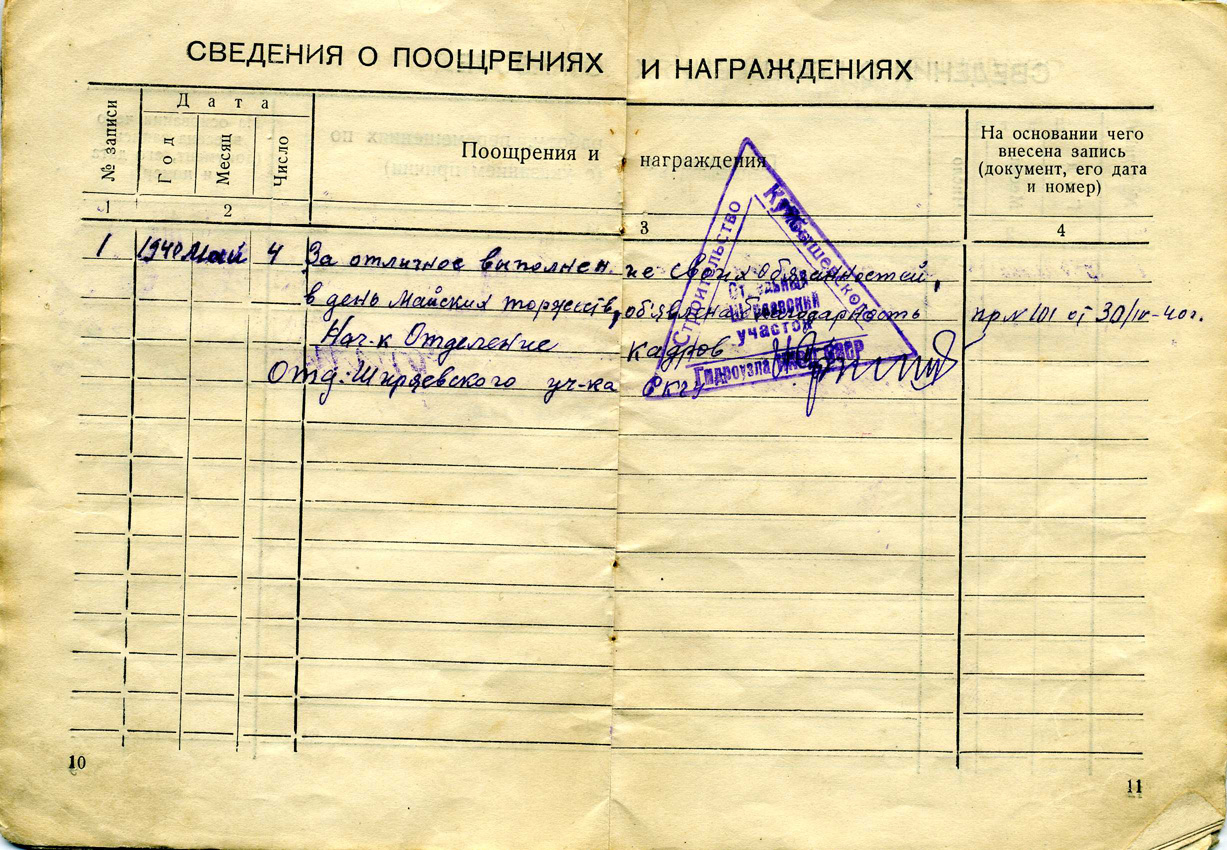 СВЕДЕНИЯ О ПООЩРЕНИЯХ И НАГРАЖДЕНИЯХ
№ записи
Дата
Год
Месяц
Число
Поощрения и награждения
На основании чего
внесена запись
(документ, его дата
и номер)
1 2 3 4
1 1940 Май 4 За отличное выполнен. ие своих обязанностей,
в день Майских торжеств, объявлена благодарность пр № 101 от 30/IV-40г.
Нач-к Отделение кадров
Отд. Ширяевского уч-ка СКГУ
Строительство
Куйбышевского
Отдельный
Ширяевский
участок
Гидроузла НКВД СССР
10
11